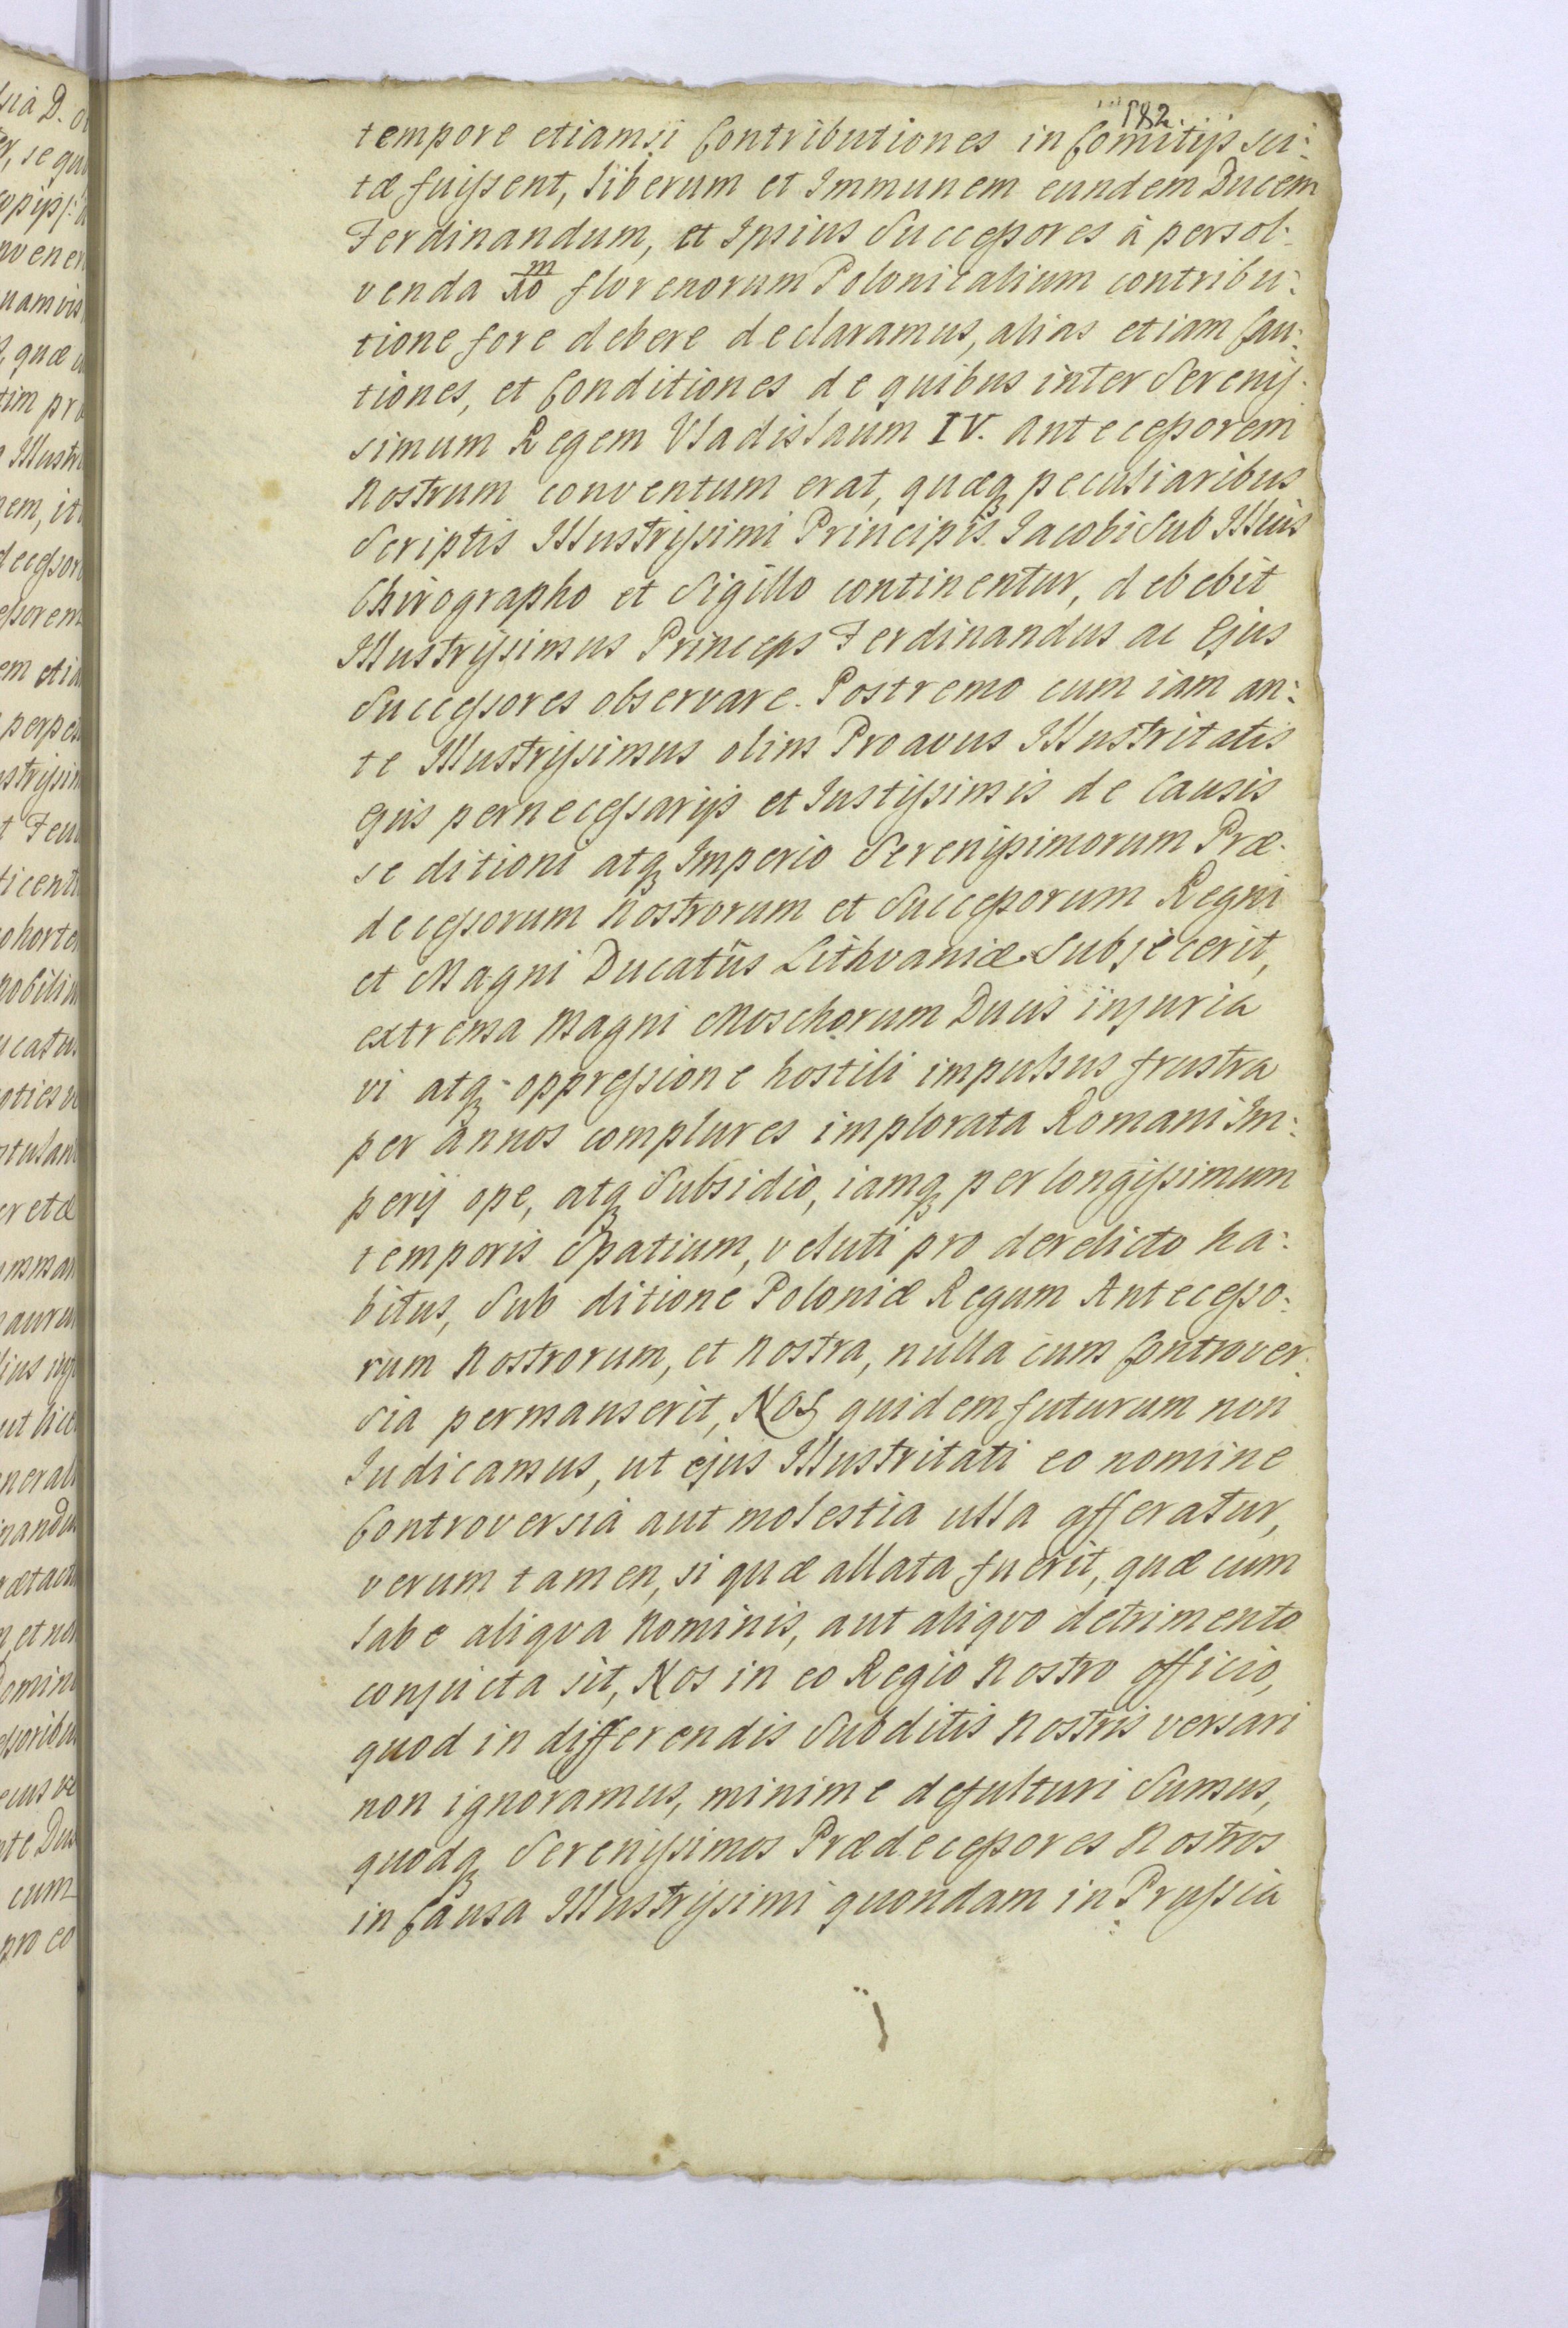 182.
tempore etiamsi Contributiones in Comitijs sci:
tæ fuissent, liberum et Immunem eundem Ducem
Ferdinandum, et Ipsius Successores à persol:
venda m/10 florenorum Polonicalium contribu:
tione fore debere declaramus, alias etiam Cau:
tiones, et Conditiones de quibus inter Serenis:
simum Regem Vladislaum IV. Antecessorem
Nostrum conventum erat, quæq₃ peculiaribus
Scriptis Illustrissimi Principis Iacobi Sub Illius
Chirographo et Sigillo continentur, debebit
Illustrissimus Princeps Ferdinandus ac Ejus
Successores observare. Postremo cum iam an:
te Illustrissimus olim Proavus Illustritatis
Ejus pernecessarijs et Iustissimis de Causis
se ditioni atq₃ Imperio Serenissimorum Præ-
decessorum Nostrorum et Successorum Regni
et Magni Ducatûs Lithvaniæ Subjecerit,
extrema Magni Moschorum Ducis injuria
vi atq₃ oppressione hostili impulsus frustra
per annos complures implorata Romani Im:
perij ope, atq₃ Subsidio, iamq₃ per longissimum
temporis Spatium, veluti pro derelicto ha:
bitus, Sub ditione Poloniæ Regum Antecesso:
rum Nostrorum, et Nostra, nulla cum Controver:
sia permanserit, NOS quidem futurum non
Iudicamus, ut ejus Illustritati eo nomine
Controversia aut molestia ulla afferatur,
verum tamen, si quæ allata fuerit, quæ cum
labe aliqva Nominis, aut aliqvo detrimento
conjucta sit, Nos in eo Regio Nostro officio,
quod in differendis Subditis Nostris versari
non ignoramus, minime defulturi Sumus,
quodq₃ Serenissimos Prædecessores Nostros
in Causa Illustrissimi quondam in Prussia